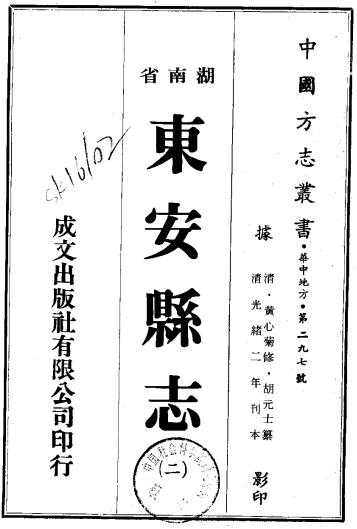 中國方志叢書•華中地方•第二九七號
據
清•黃心菊修•胡元士纂
清光緒二年刊本
影印
湖南省
東安縣志
(二)
成文出版社有限公司印行